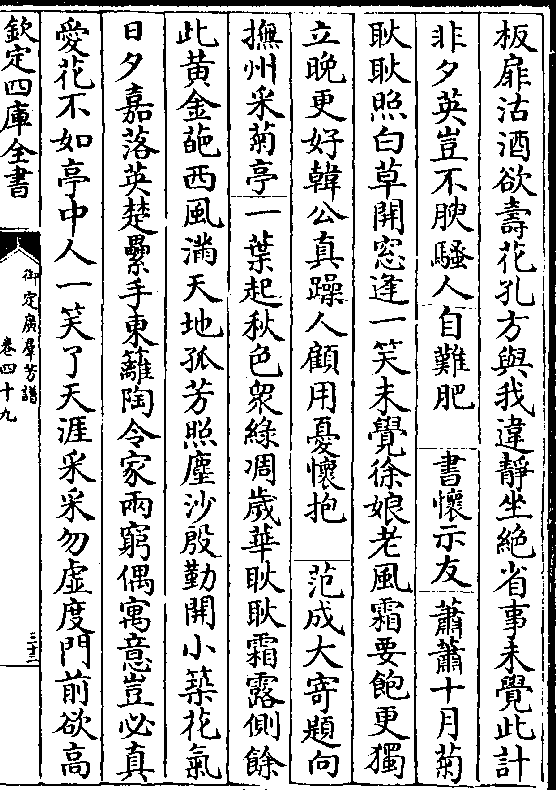 板扉沽酒欲壽花孔方與我違靜坐絶省事未覺此計
非夕英豈不腴騷人自難肥 書懷示友 蕭蕭十月菊
耿耿照白草開窓逢一笑未覺徐娘老風霜要飽更獨
立晚更好韓公真躁人顧用憂懷抱 范成大寄題向
撫州采菊亭 一葉起秋色衆綠凋歲華耿耿霜露側餘
此黄金葩西風滿天地孤芳照塵沙殷勤開小築花氣
日夕嘉落英楚纍手東籬陶令家兩窮偶寓意豈必真
愛花不如亭中人一笑了天涯采采勿虚度門前欲高
欽定四庫全書
御定廣羣芳譜
卷四十九
三十三